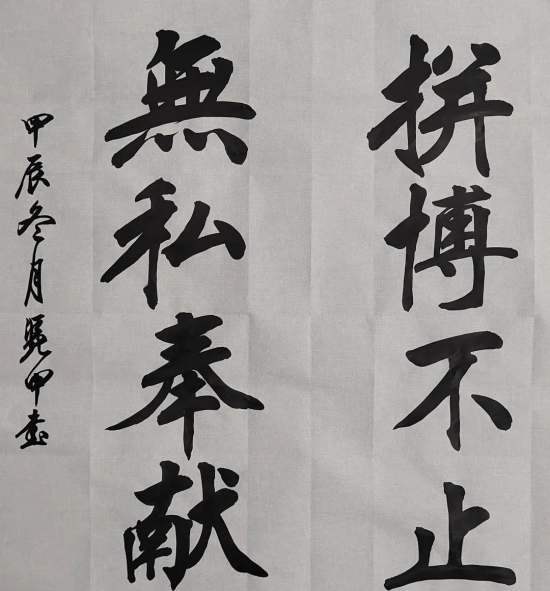 拼搏不止
無私奉献
甲辰冬月晓甲书